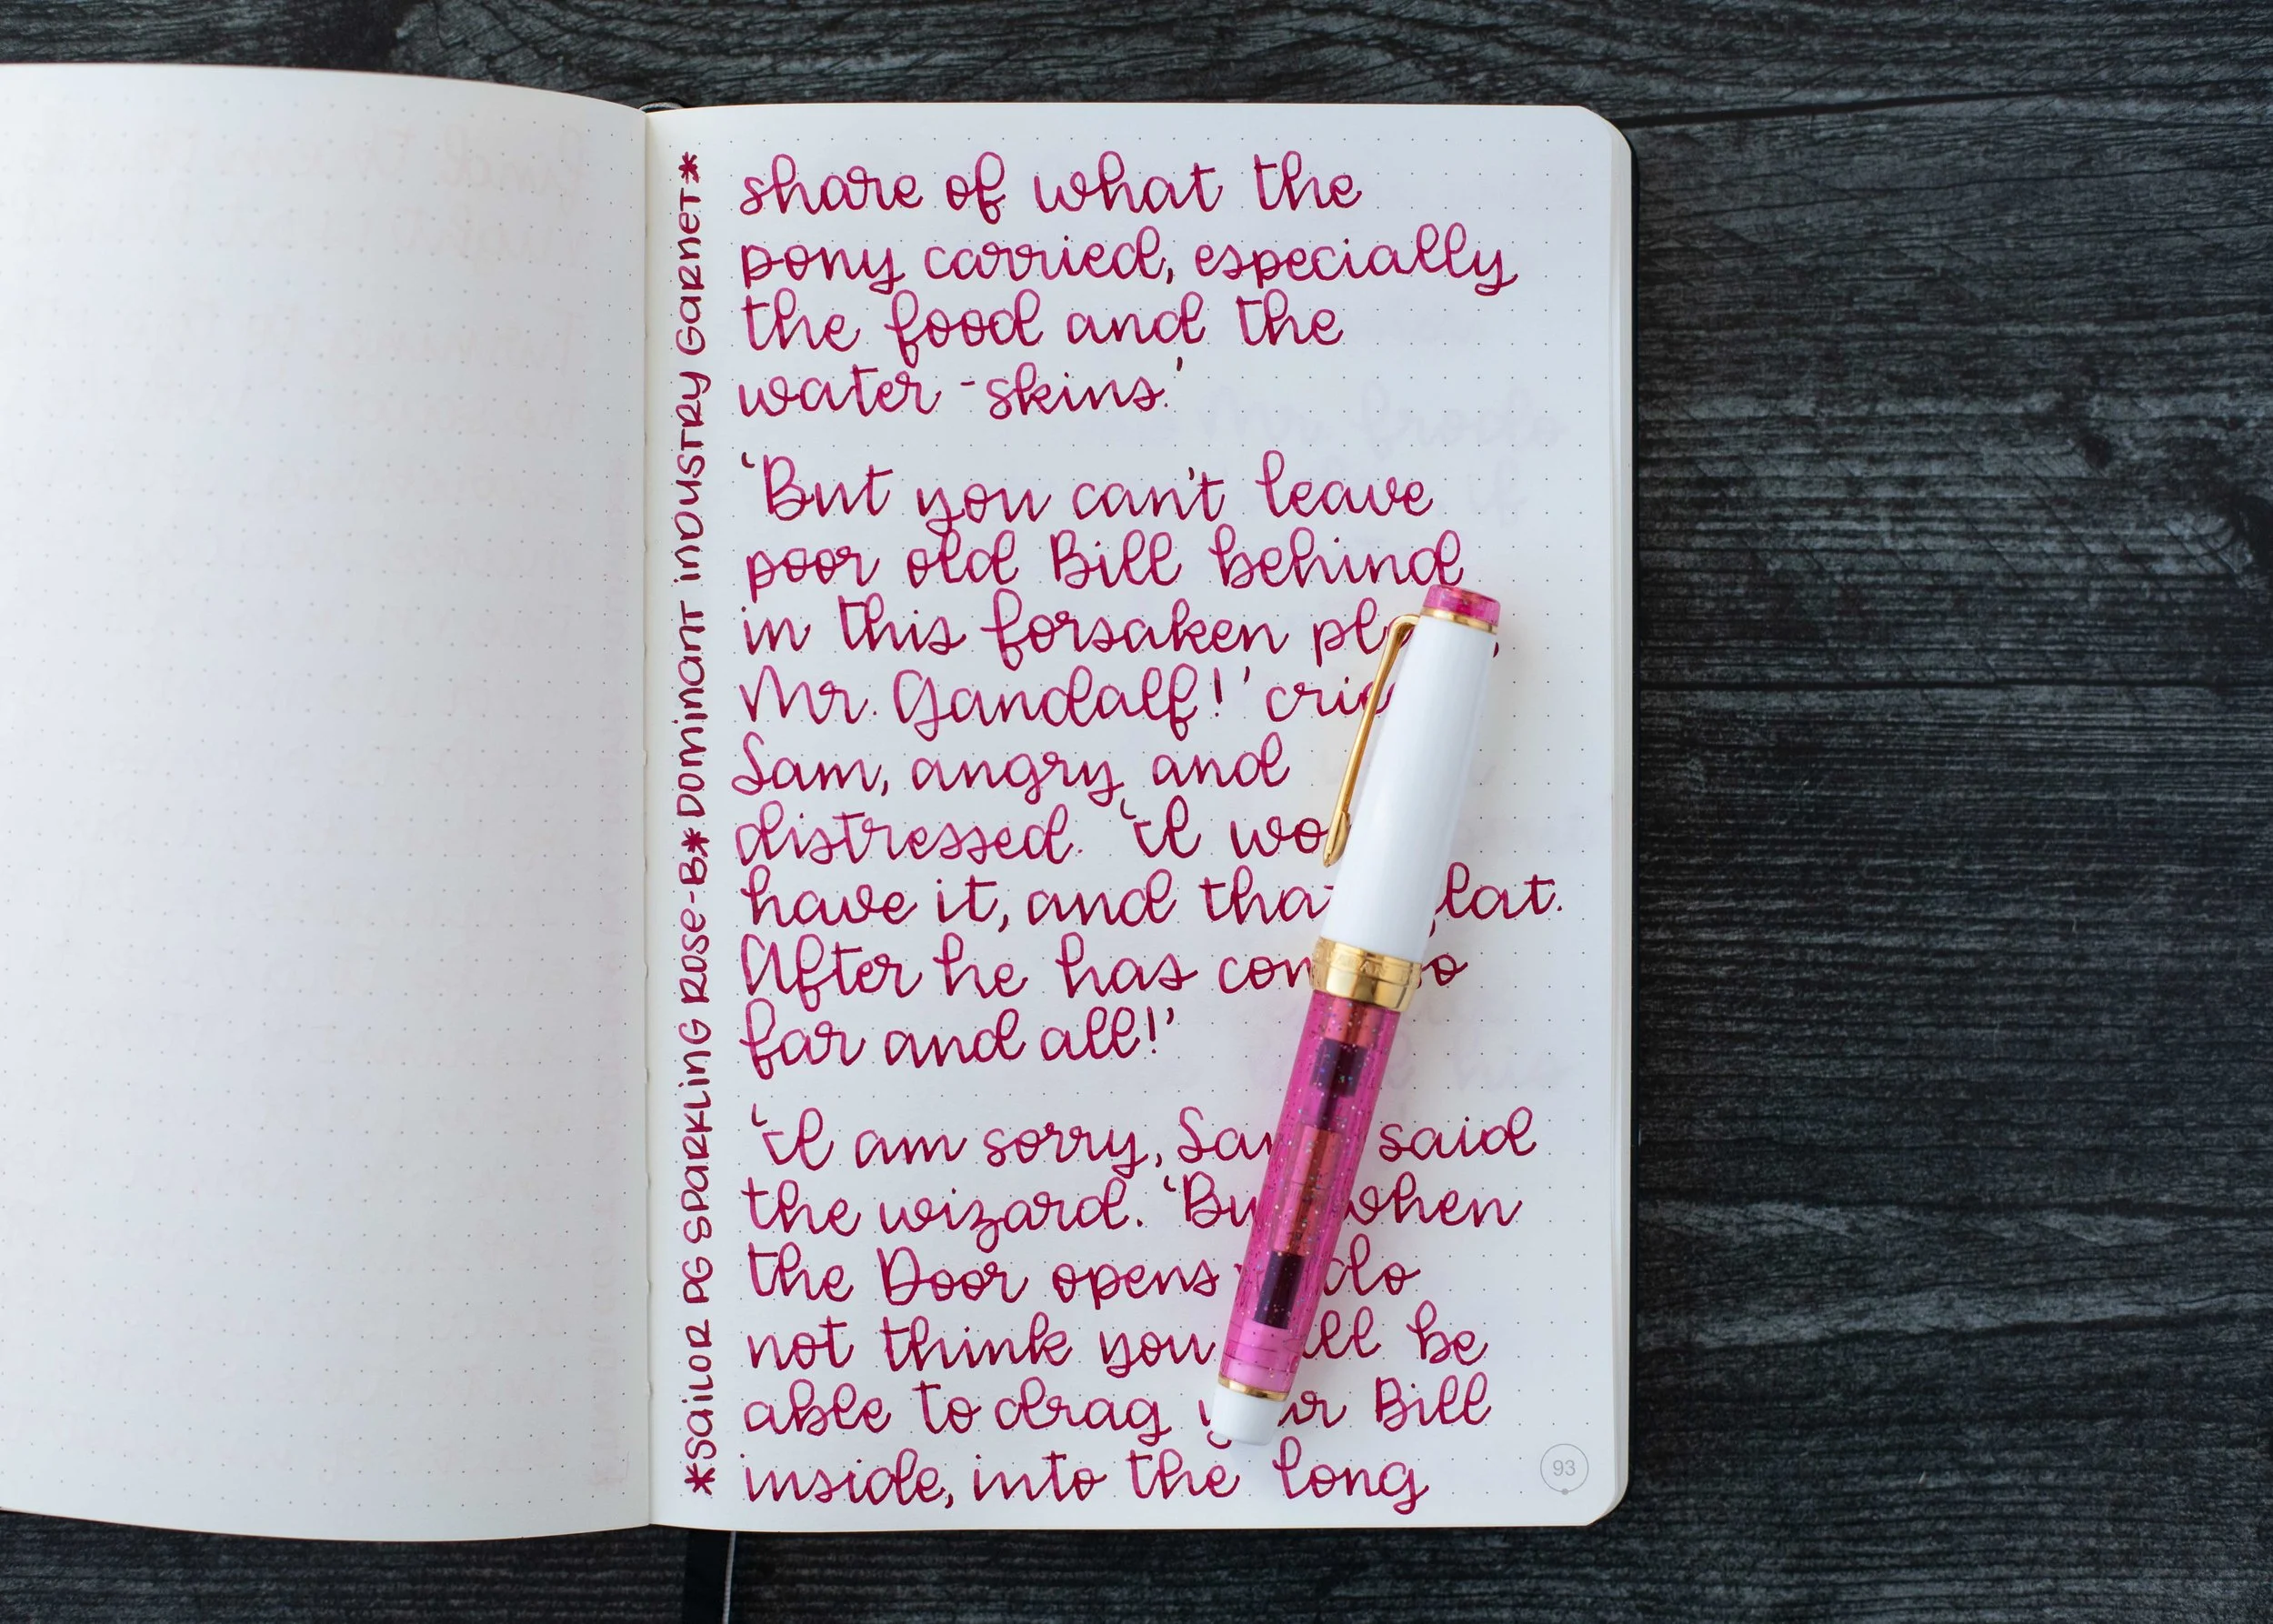 *SAILOR PG SPARKLING ROSE-B*DOMINANT INDUSTRY GARNET*
share of what the
pony carried, especially
the food and the
water-skins.'
'But you can't leave
poor old Bill behind
in this forsaken
Mr. Gandalf!'
Sam, angry and
distressed. 'I
have it, and
After he has
far and all!'
'I am sorry, said
the wizard.
the Door opens do
not think you be
able to drag Bill
inside, into the long
93